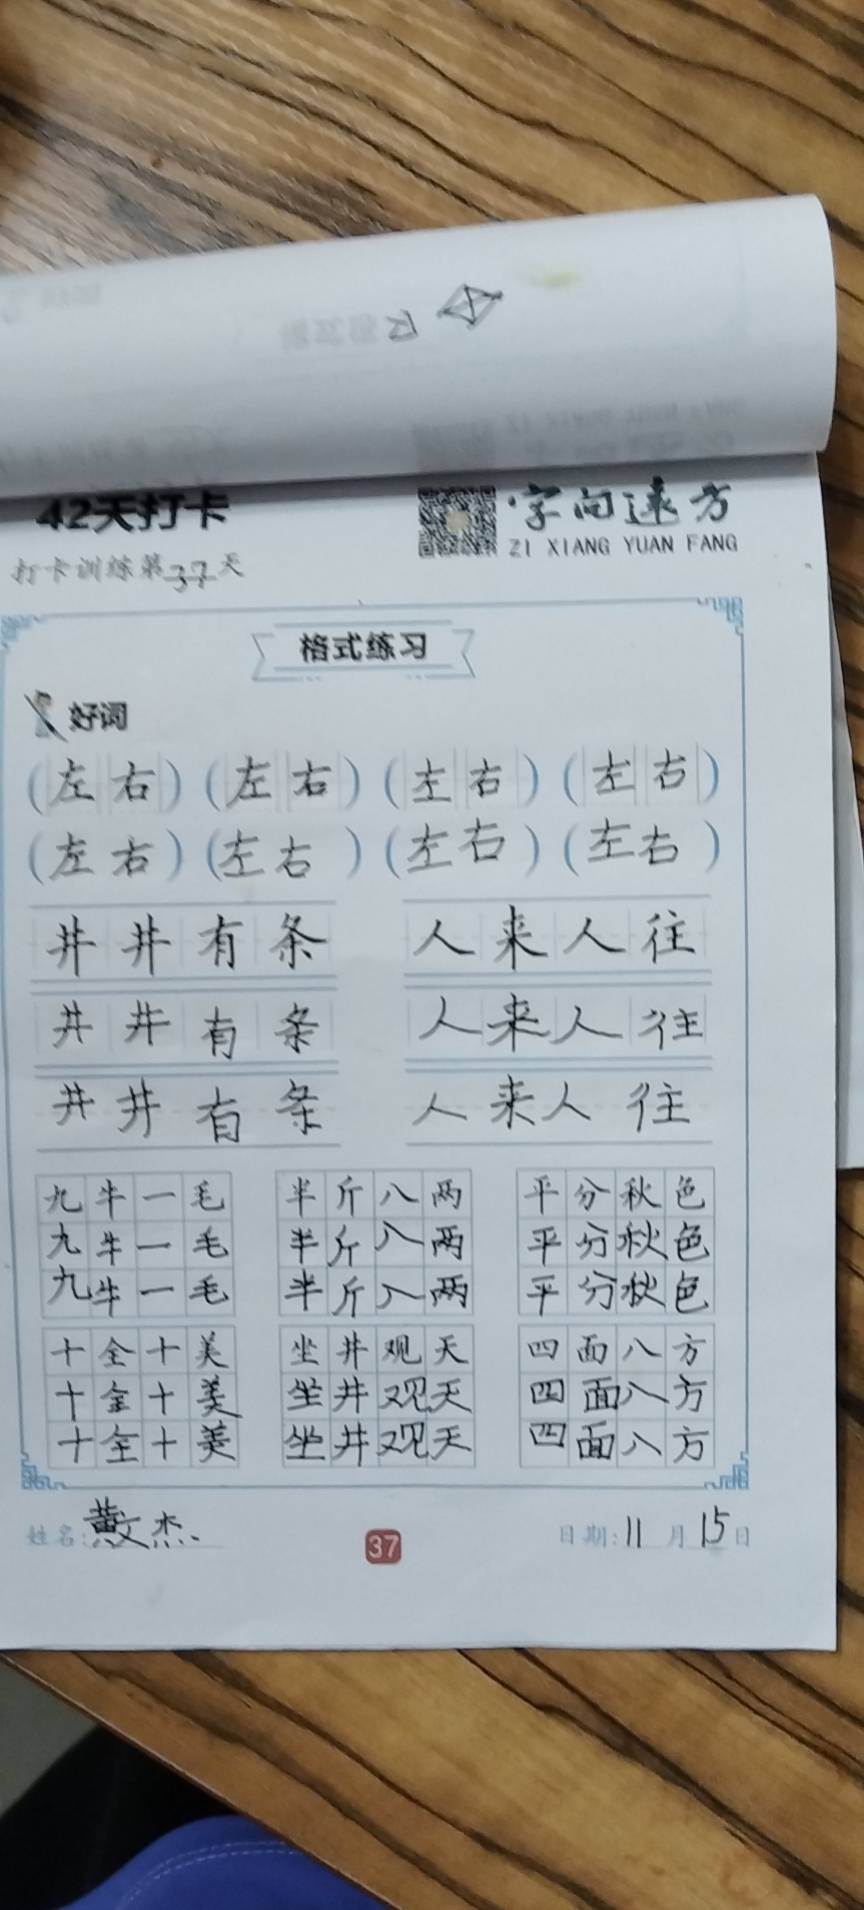 42天打卡
字向远方
ZI XIANG YUAN FANG
打卡训练第37天
格式练习
好词
(左右) (左右) (左右) (左右)
(左右) (左右) (左右) (左右)
井井有条 人来人往
井井有条 人来人往
井井有条 人来人往
九牛一毛 半斤八两 平分秋色
九牛一毛 半斤八两 平分秋色
九牛一毛 半斤八两 平分秋色
十全十美 坐井观天 四面八方
十全十美 坐井观天 四面八方
十全十美 坐井观天 四面八方
姓名:黄文杰 37 日期:11月15日